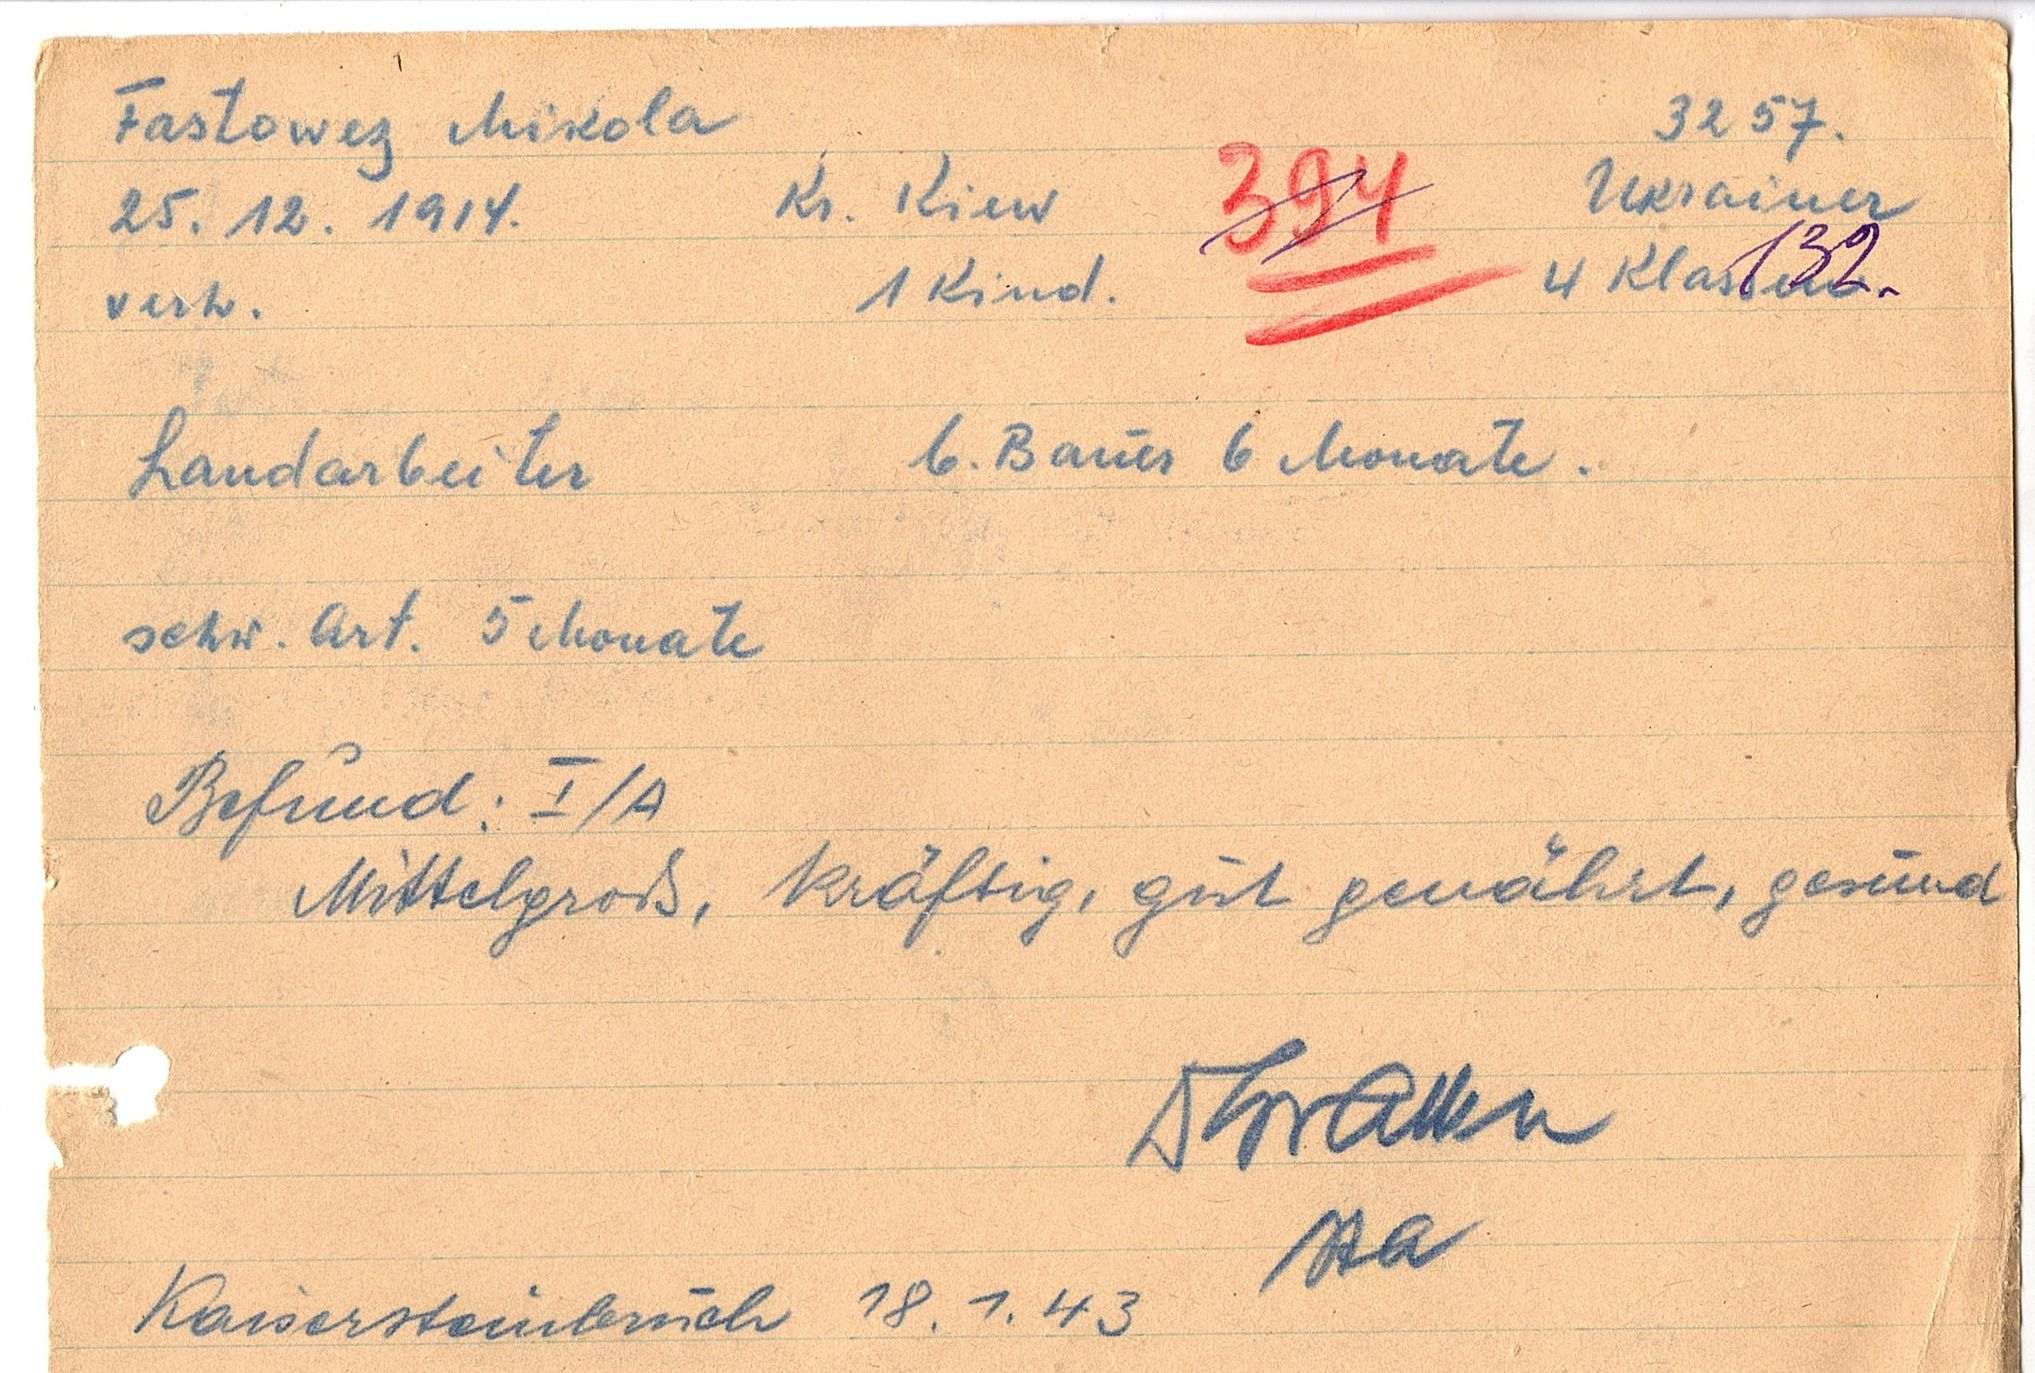 Fastowez Mikola 3257.
25.12.1914. Kr. Kiew 394 Ukrainer
verh. 1 Kind. 4 Klassen. 132.
Landarbeiter b. Bauer 6 Monate.
schw. Art. 5 Monate
Befund: I/A
Mittelgroß, kräftig, gut genährt, gesund
Kaisersteinbruch 18.1.43